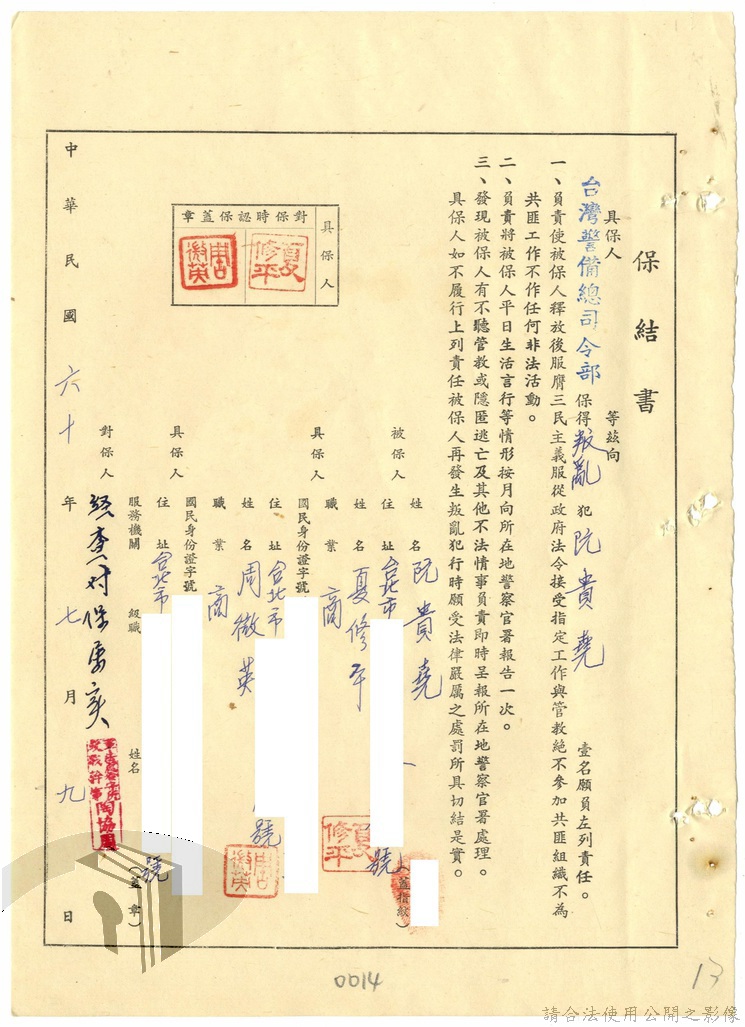 保結書
具保人 等茲向
台灣警備總司令部 保得叛亂犯阮貴堯 壹名願負左列責任。
一、負責使被保人釋放後服膺三民主義服從政府法令接受指定工作與管教絕不參加共匪組織不為
共匪工作不作任何非法活動。
二、負責將被保人平日生活言行等情形按月向所在地警察官署報告一次。
三、發現被保人有不聽管教或隱匿逃亡及其他不法情事負責即時呈報所在地警察官署處理。
具保人如不履行上列責任被保人再發生叛亂犯行時願受法律嚴厲之處罰所具切結是實。
具保人
對保時認保蓋章
夏修平
周徵英
被保人 姓名 阮貴堯
住址 台北市 號 蓋指紋）
具保人 姓名 夏修平
夏修平
職業 商
國民身份證字號
住址 台北市 號
具保人 姓名 周徵英
周徵英
職業 商
國民身份證字號
住址 台北市 號
對保人 服務機關 級職 姓名 （蓋章）
經查對保屬實
陶協
中華民國六十年七月九日
0014
13
請合法使用公開之影像